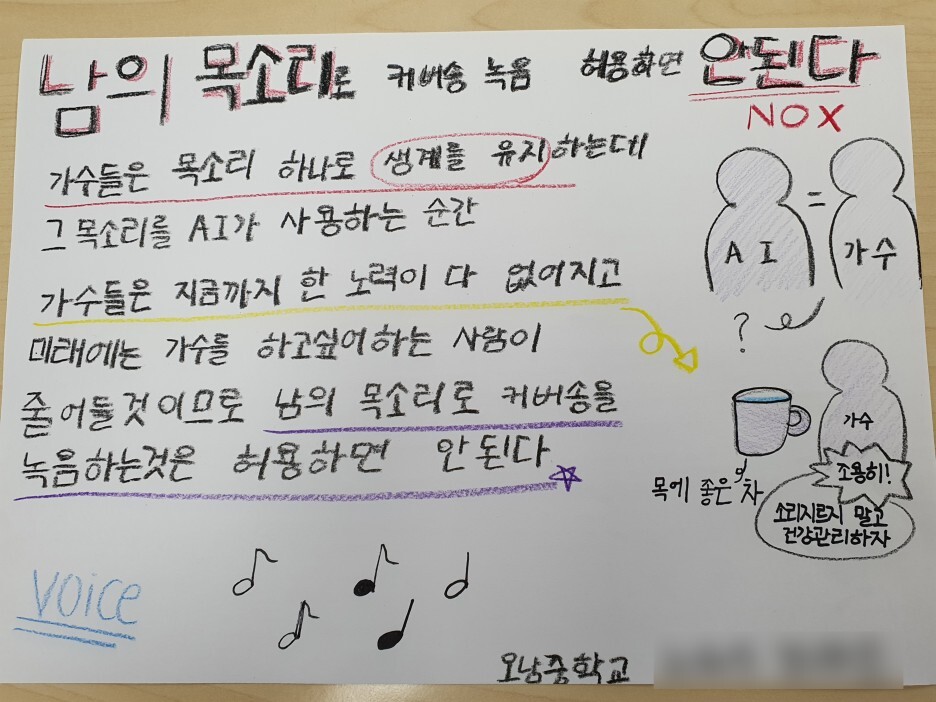 남의 목소리로 커버송 녹음 허용하면 안된다
NO X
가수들은 목소리 하나로 생계를 유지하는데
그 목소리를 AI가 사용하는 순간
가수들은 지금까지 한 노력이 다 없어지고
미래에는 가수를 하고싶어하는 사람이
줄어들것이므로 남의 목소리로 커버송을
녹음하는것은 허용하면 안된다
AI = 가수
?
가수
조용히!
목에 좋은 차
소리지르지 말고
건강관리하자
voice
오남중학교